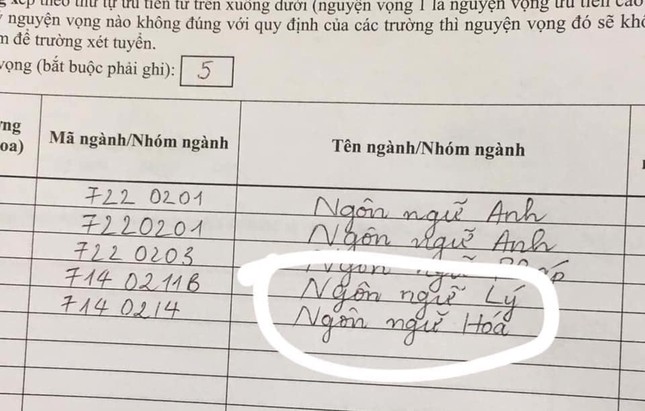 xếp theo thứ tự ưu tiên từ trên xuống dưới (nguyện vọng 1 là nguyện vọng ưu tiên cao
nguyện vọng nào không đúng với quy định của các trường thì nguyện vọng đó sẽ
để trường xét tuyển.
vọng (bắt buộc phải ghi): 5
Mã ngành/Nhóm ngành Tên ngành/Nhóm ngành
722 0201 Ngôn ngữ Anh
7220201 Ngôn ngữ Anh
722 0203 Ngôn ngữ
714 0211B Ngôn ngữ Lý
714 0214 Ngôn ngữ Hóa